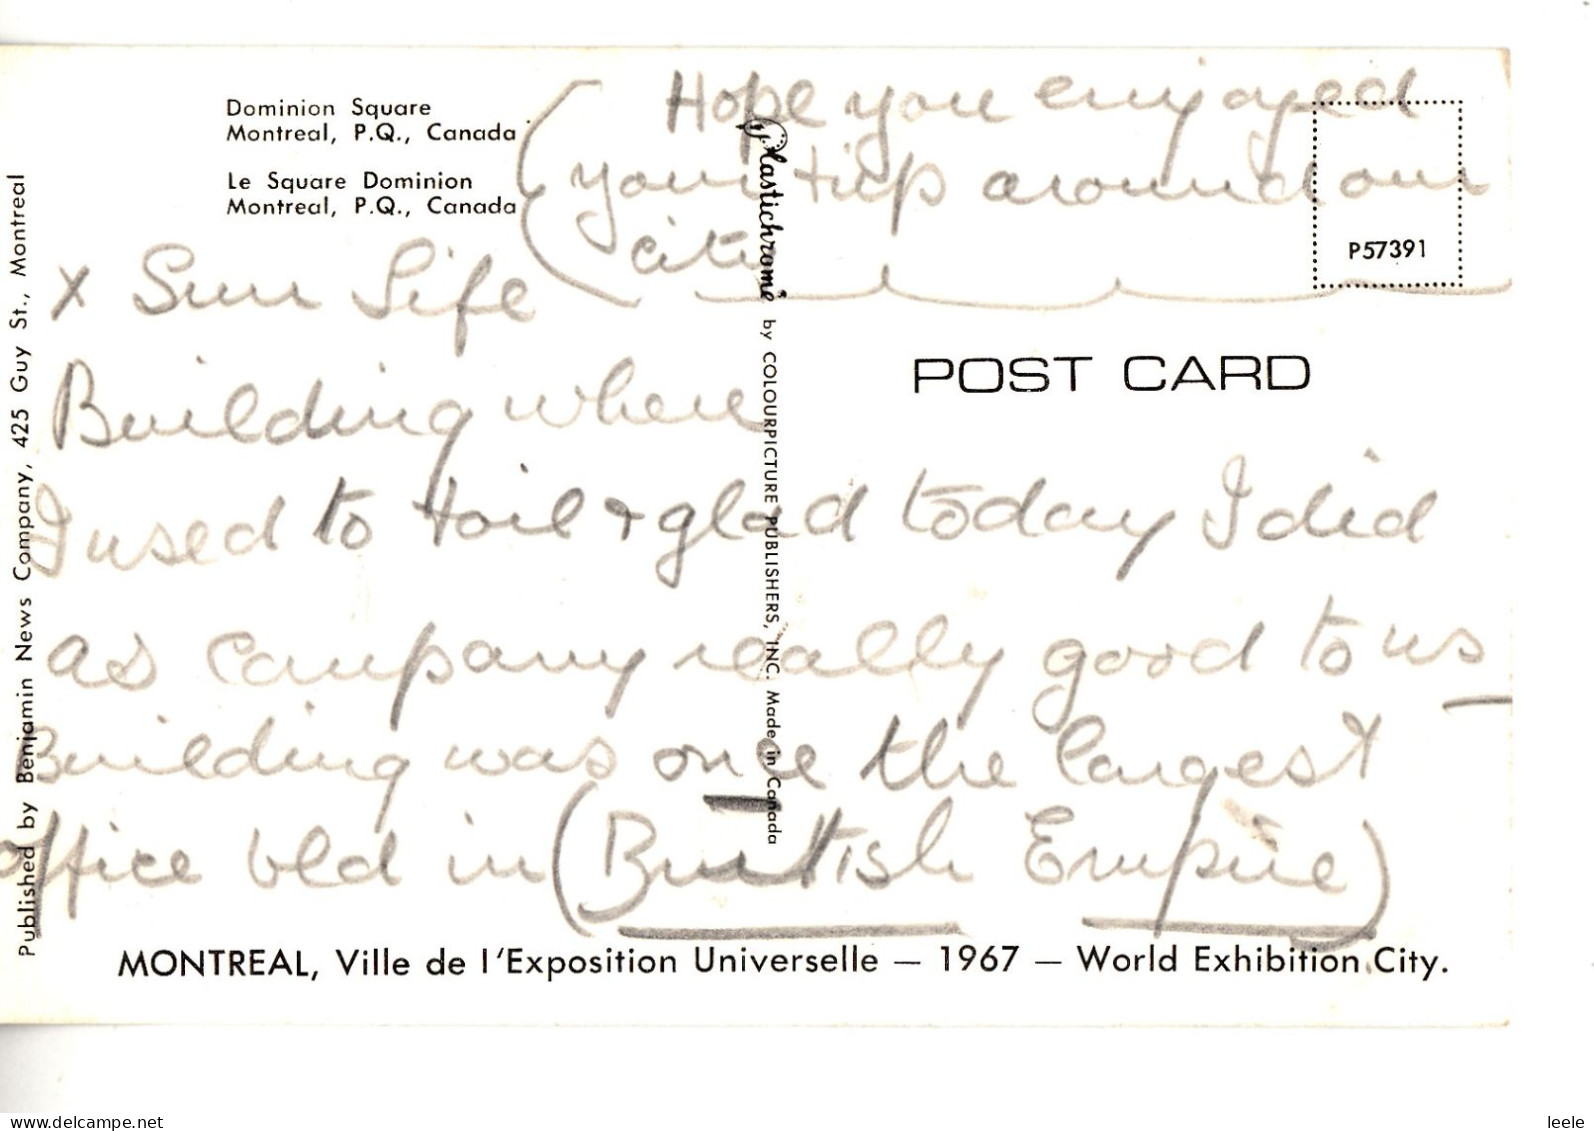 Dominion Square
Montreal, P.Q., Canada
Le Square Dominion
Montreal, P.Q., Canada
Hope you enjoyed
your trip around our
city
P57391
x Sun Life
Building where
I used to toil + glad today I did
as company really good to us
Building was once the largest
office bld in (British Empire)
POST CARD
Plastichrome by COLOURPICTURE PUBLISHERS, INC. Made in Canada
Published by Benjamin News Company, 425 Guy St., Montreal
MONTREAL, Ville de l'Exposition Universelle — 1967 — World Exhibition City.
www.delcampe.net
leele